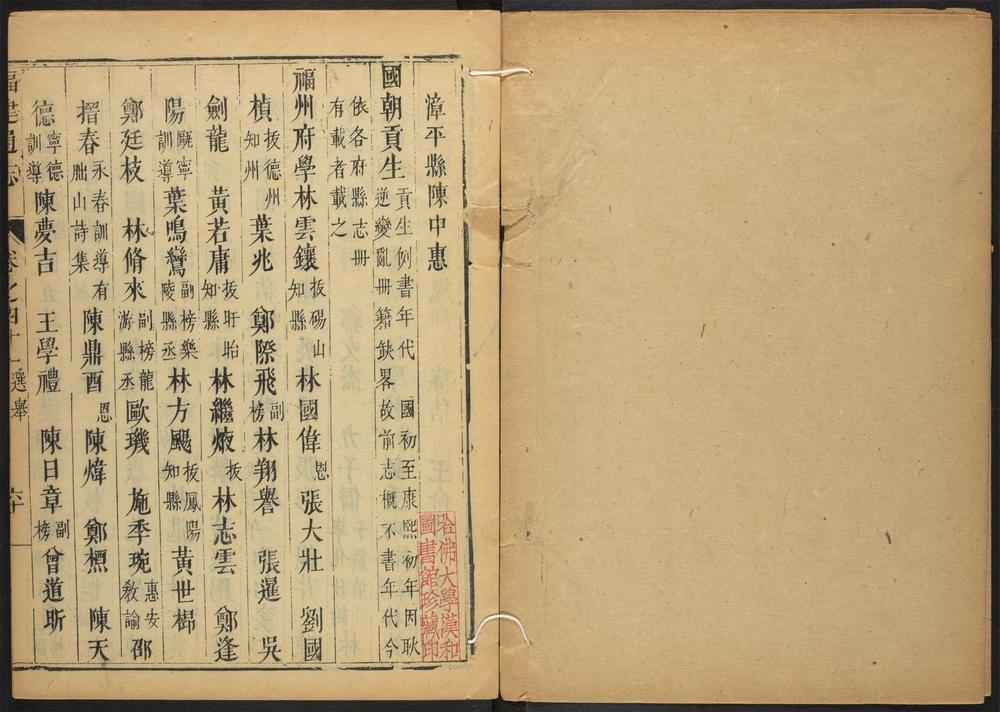 漳平縣陳中惠
國朝貢生貢生例書年代國初至康熙初年因耿
逆變亂冊籍缺畧故前志概不書年代今
依各府縣志冊
有載者載之
福州府學林雲鑲拔碭山知縣林國偉恩張大壯劉國
楨拔德州知州葉兆鄭際飛副榜林翔譽張暹吳
劍龍黃若庸拔盱眙知縣林繼焲拔林志雲鄭逢
陽甌寧訓導葉鳴鸞副榜樂陵縣丞林方颺拔鳳陽知縣黃世槨
鄭廷枝林脩來副榜龍游縣丞歐璣施季琬惠安教諭邵
搢春永春訓導有朏山詩集陳鼎酉恩陳煒鄭標陳天
德寧德訓導陳夢吉王學禮陳日章副榜曾道昕
福建通志卷之四十一選舉
哈佛大學漢和
圖書館珍藏印